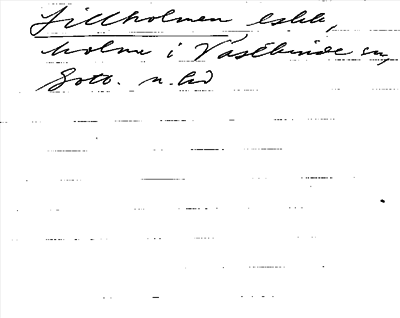 Lillholmen eskk,
holme i Västbinde sn,
Gotl. n. hd